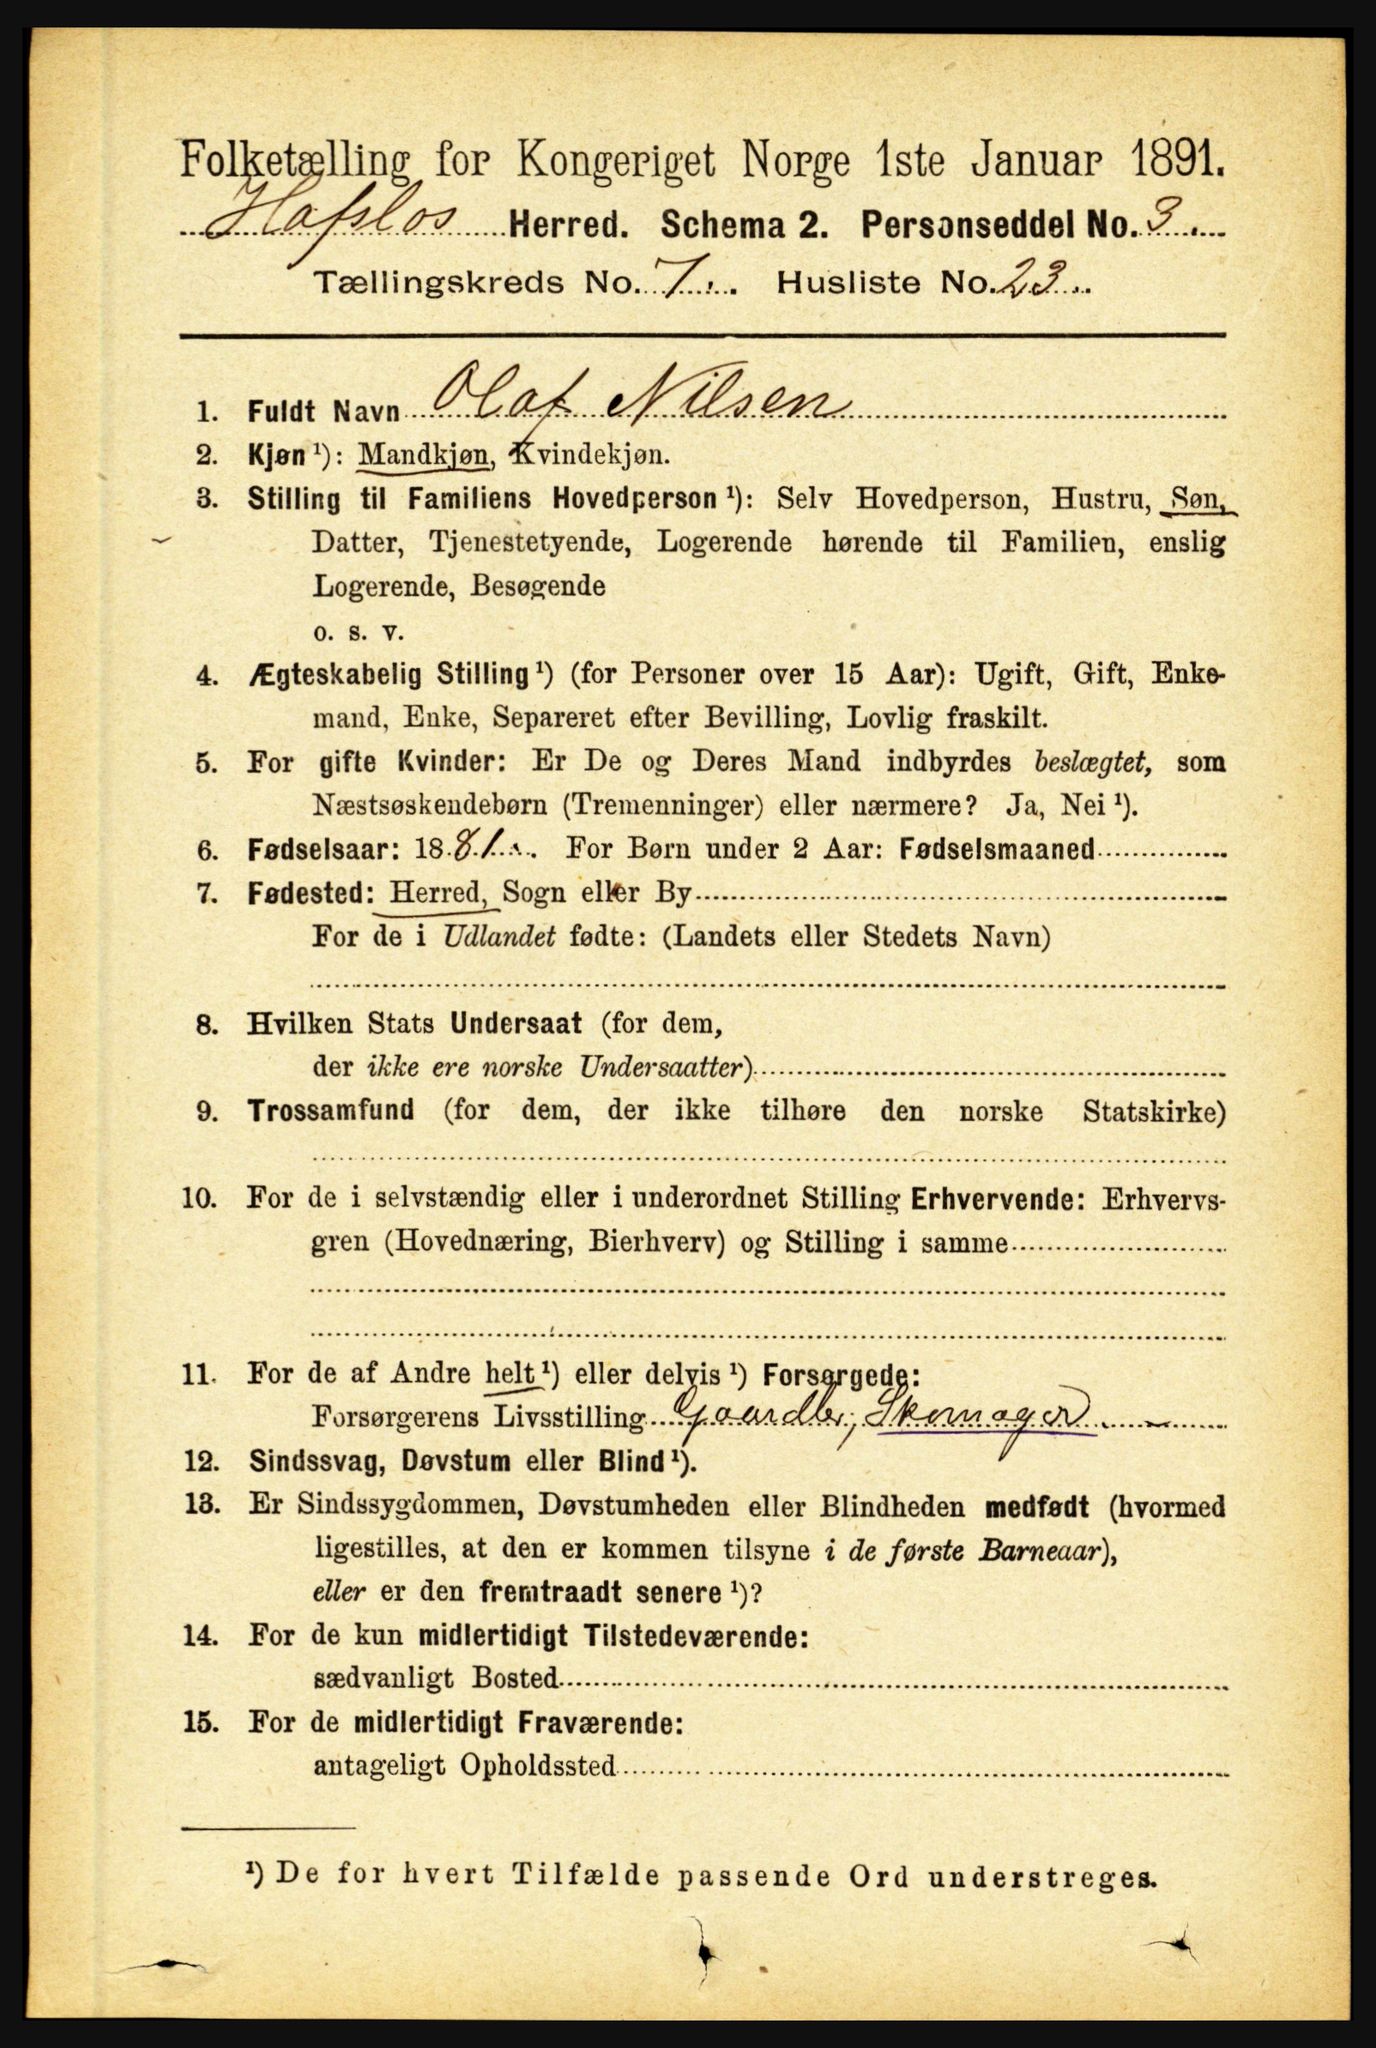 Folketælling for Kongeriget Norge 1ste Januar 1891.
Hafslos Herred. Schema 2. Personseddel No. 3.
Tællingskreds No. 7. Husliste No. 23.
1. Fuldt Navn Olaf Nilsen
2. Kjøn ¹): Mandkjøn, Kvindekjøn.
3. Stilling til Familiens Hovedperson ¹): Selv Hovedperson, Hustru, Søn,
Datter, Tjenestetyende, Logerende hørende til Familien, enslig
Logerende, Besøgende
o. s. v.
4. Ægteskabelig Stilling ¹) (for Personer over 15 Aar): Ugift, Gift, Enke-
mand, Enke, Separeret efter Bevilling, Lovlig fraskilt.
5. For gifte Kvinder: Er De og Deres Mand indbyrdes beslægtet, som
Næstsøskendebørn (Tremenninger) eller nærmere? Ja, Nei ¹).
6. Fødselsaar: 1881. For Børn under 2 Aar: Fødselsmaaned
7. Fødested: Herred, Sogn eller By
For de i Udlandet fødte: (Landets eller Stedets Navn)
8. Hvilken Stats Undersaat (for dem,
der ikke ere norske Undersaatter)
9. Trossamfund (for dem, der ikke tilhøre den norske Statskirke)
10. For de i selvstændig eller i underordnet Stilling Erhvervende: Erhvervs-
gren (Hovednæring, Bierhverv) og Stilling i samme
11. For de af Andre helt ¹) eller delvis ¹) Forsørgede:
Forsørgerens Livsstilling Gaardbr, Skomager
12. Sindssvag, Døvstum eller Blind ¹).
13. Er Sindssygdommen, Døvstumheden eller Blindheden medfødt (hvormed
ligestilles, at den er kommen tilsyne i de første Barneaar),
eller er den fremtraadt senere ¹)?
14. For de kun midlertidigt Tilstedeværende:
sædvanligt Bosted
15. For de midlertidigt Fraværende:
antageligt Opholdssted
¹) De for hvert Tilfælde passende Ord understreges.